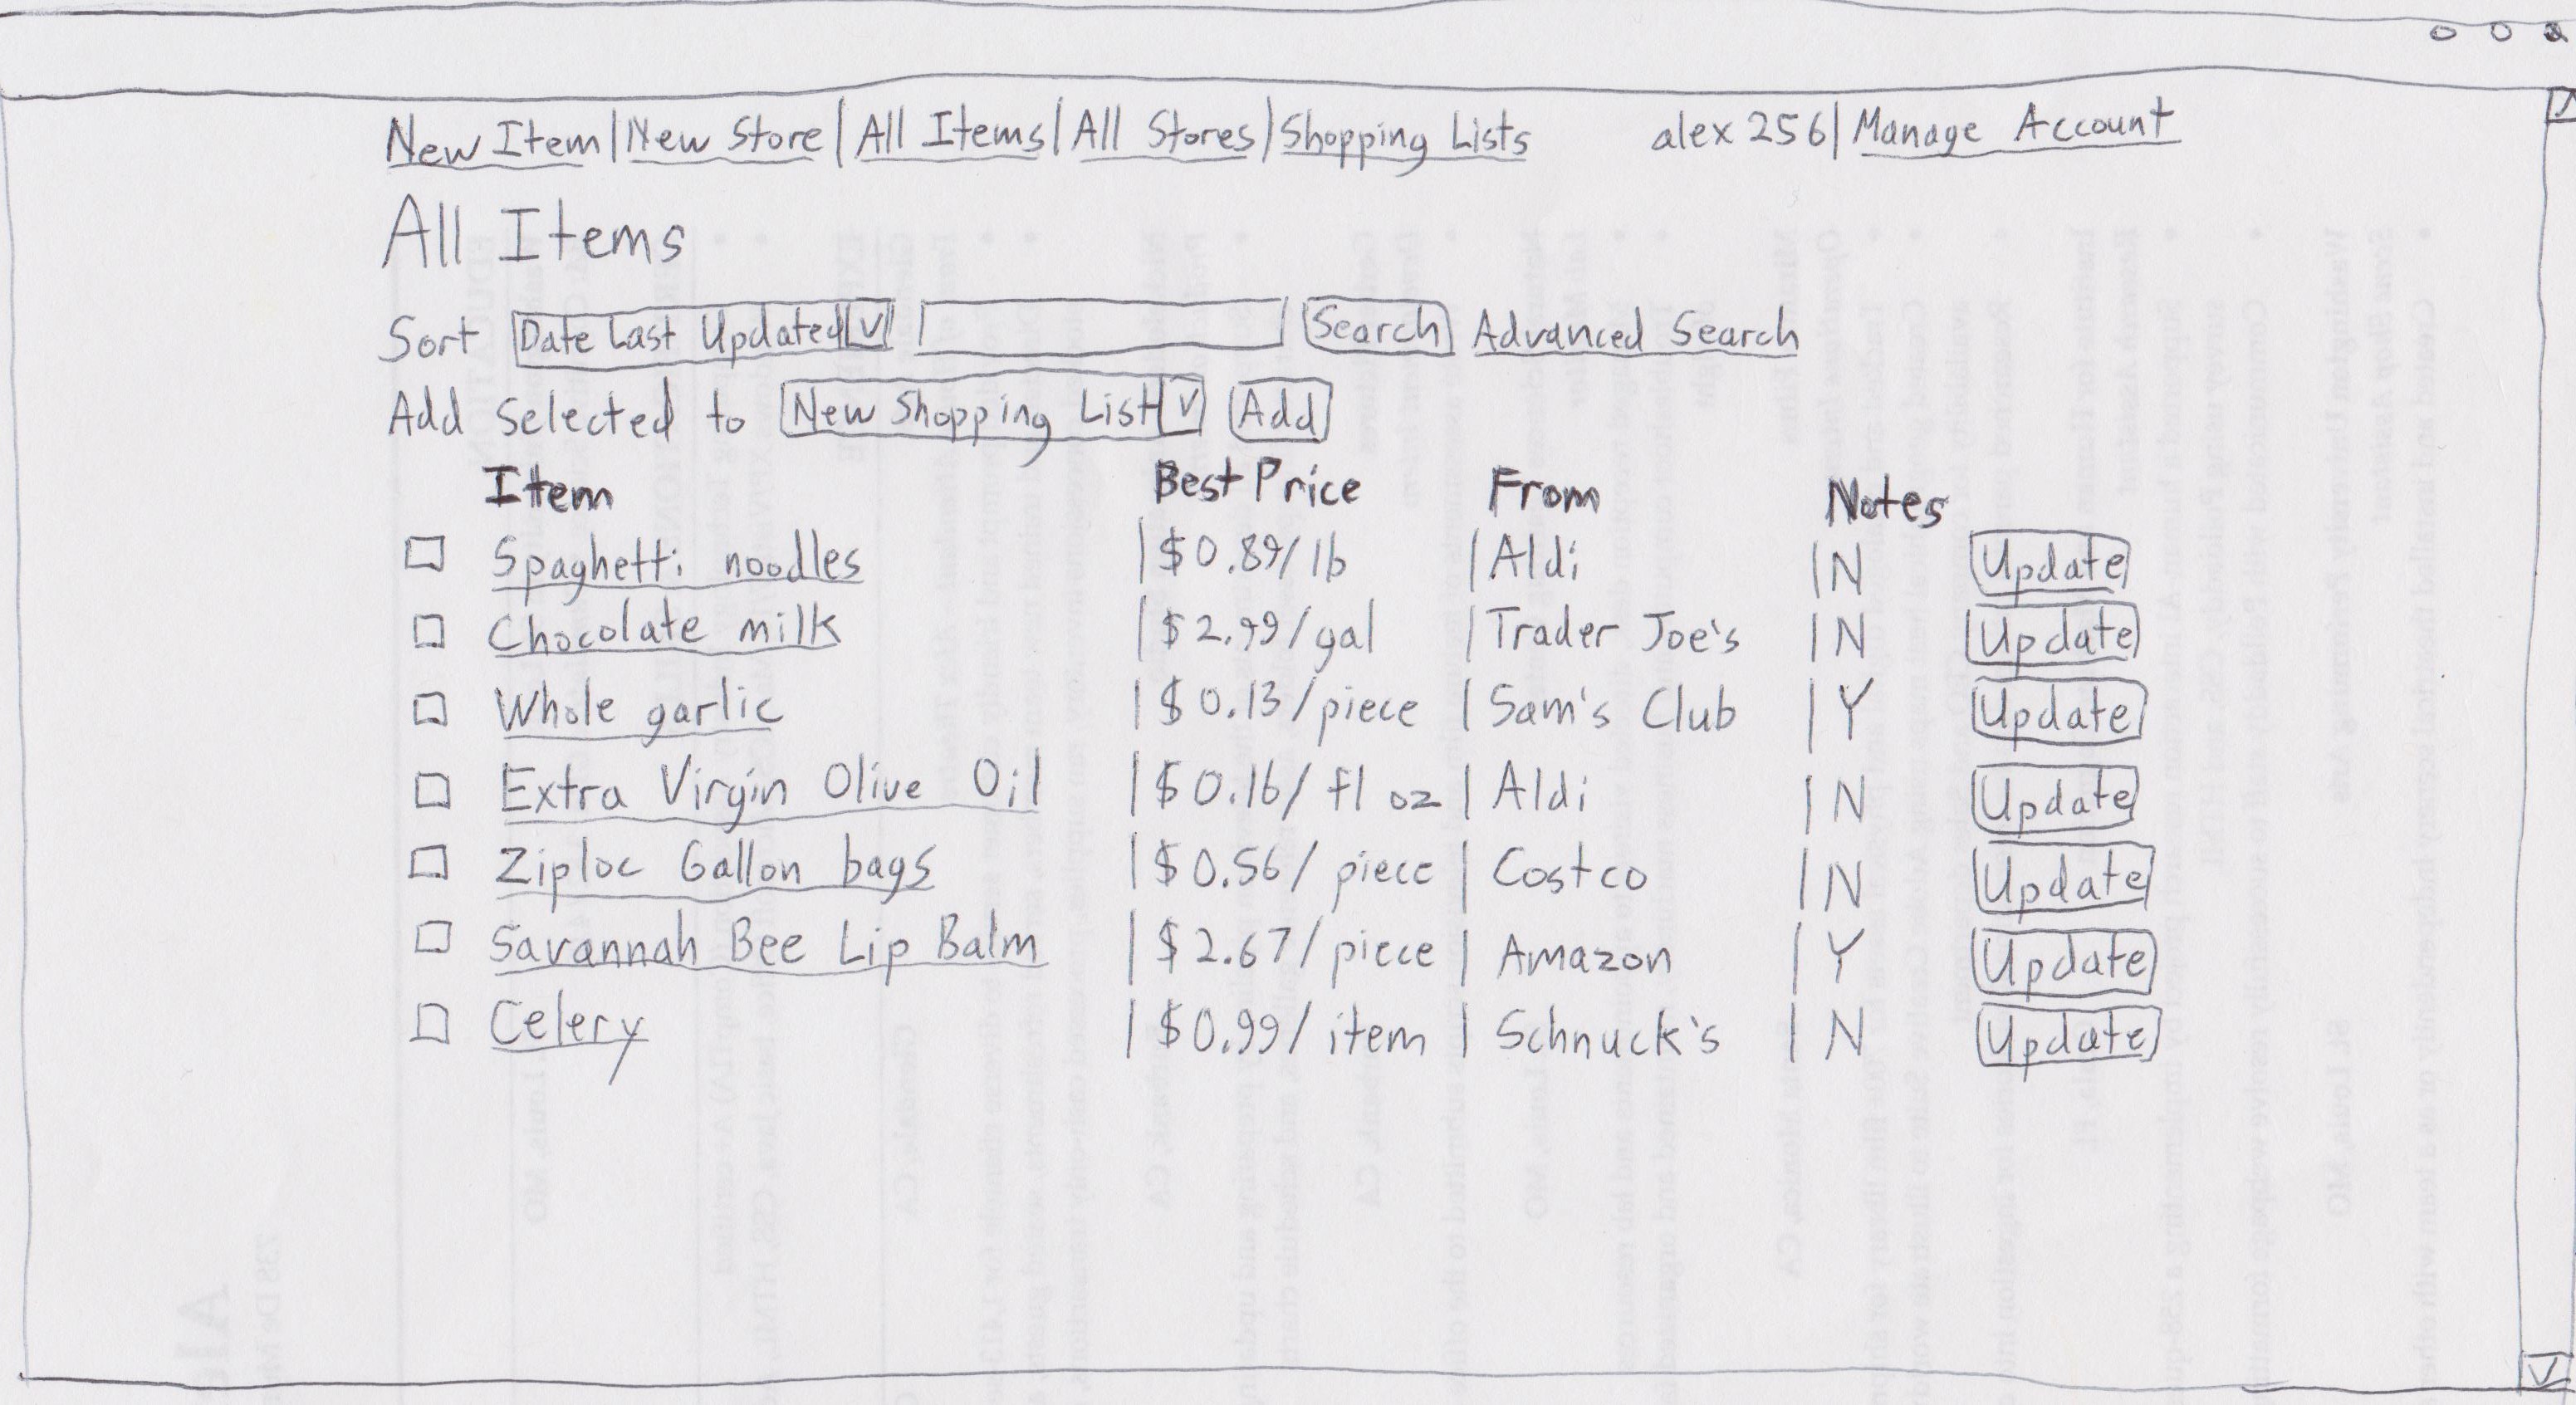 New Item | New Store | All Items | All Stores | Shopping Lists alex 256 | Manage Account
All Items
Sort Date Last Updated V Search Advanced Search
Add selected to New Shopping List V Add
Item Best Price From Notes
Spaghetti noodles | $0.89/lb | Aldi | N Update
Chocolate milk | $2.99/gal | Trader Joe's | N Update
Whole garlic | $0.13/piece | Sam's Club | Y Update
Extra Virgin Olive Oil | $0.16/fl oz | Aldi | N Update
Ziploc Gallon bags | $0.56/piece | Costco | N Update
Savannah Bee Lip Balm | $2.67/piece | Amazon | Y Update
Celery | $0.99/item | Schnuck's | N Update